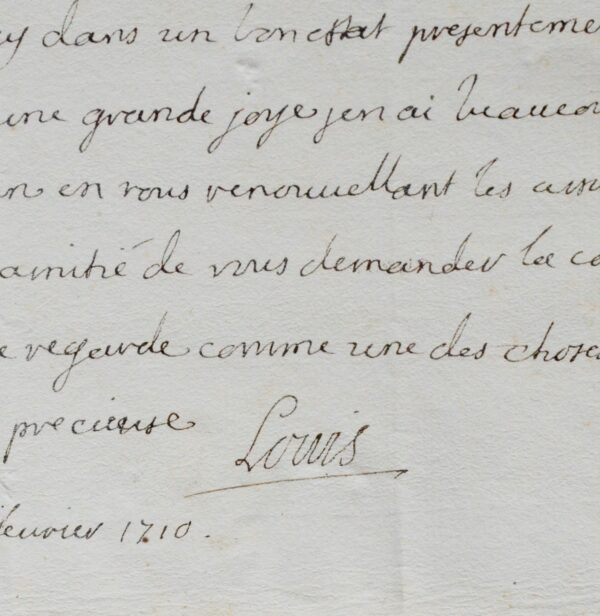 y dans un bon estat presenteme
une grande joye jen ai beaucou
n en vous renouvellant les assu
amitié de vous demander la co
e regarde comme une des choses
precieuse
Louis
feuvrier 1710.